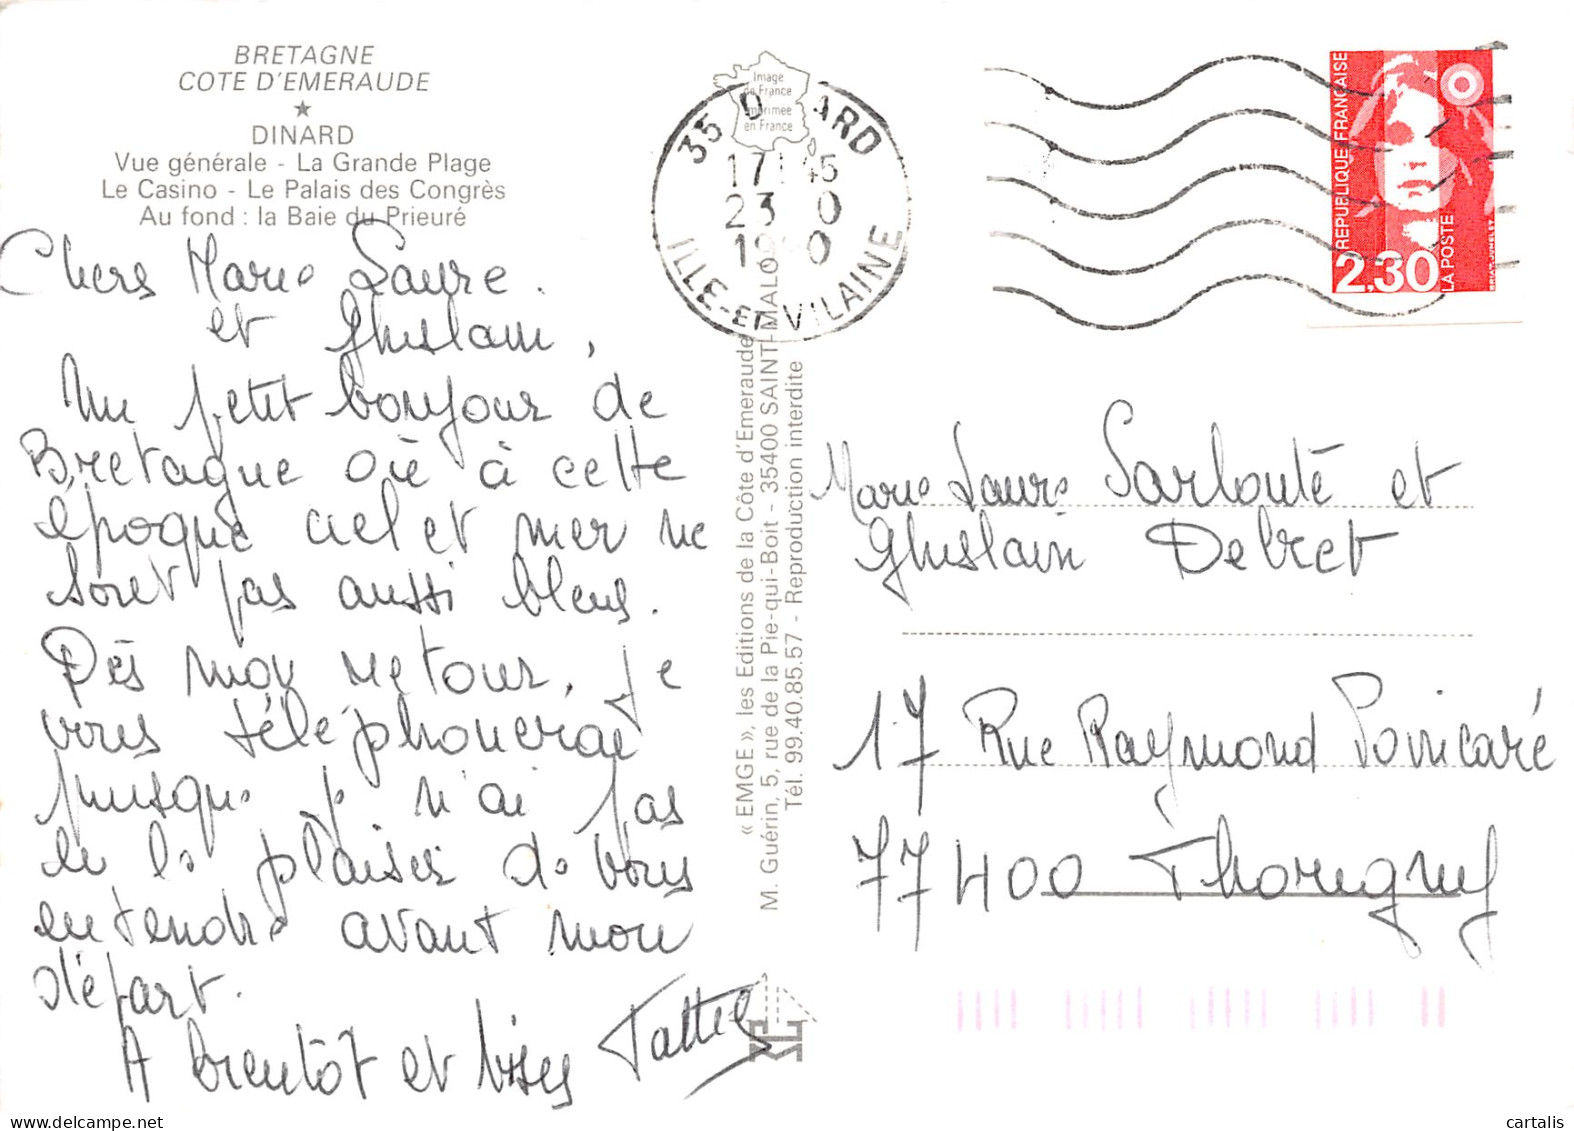 BRETAGNE
COTE D'EMERAUDE
★
DINARD
Vue générale - La Grande Plage
Le Casino - Le Palais des Congrès
Au fond : la Baie du Prieuré
Chers Marie Laure
et Ghislain,
Un petit bonjour de
Bretagne où à cette
époque ciel et mer ne
sont pas aussi bleus.
Dès mon retour, je
vous téléphonerai
puisque je n'ai pas
eu le plaisir de vous
entendre avant mon
départ.
A bientôt et bises
Image
de France
imprimée
en France
35 D ARD
17 45
23 0
19 0
ILLE-ET-VILAINE
« EMGE », les Editions de la Côte d'Emeraude
M. Guérin, 5, rue de la Pie-qui-Boit - 35400 SAINT-MALO
Tél. 99.40.85.57 - Reproduction interdite
REPUBLIQUE FRANÇAISE
2,30
LA POSTE
Marie Laure Sarlouté et
Ghislain Debret
17 Rue Raymond Poincaré
77400 Thorigny
cartalis